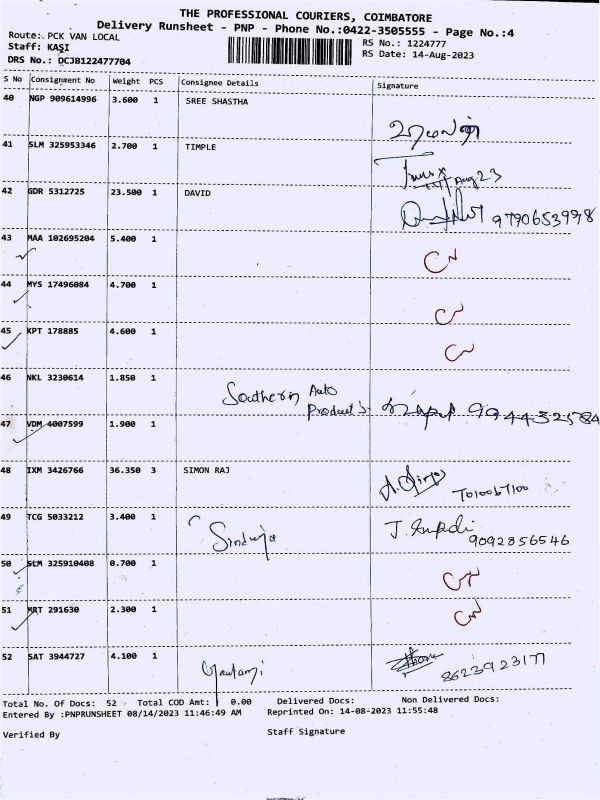 THE PROFESSIONAL COURIERS, COIMBATORE
Delivery Runsheet - PNP - Phone No.:0422-3505555 - Page No.:4
Route:. PCK VAN LOCAL
RS No.: 1224777
Staff: KASI
RS Date: 14-Aug-2023
DRS No.: DCJB122477704
S No Consignment No Weight PCS Consignee Details Signature
40 NGP 909614996 3.600 1 SREE SHASTHA
41 SLM 325953346 2.700 1 TIMPLE
Aug 23
42 GDR 5312725 23.500 1 DAVID
9790653998
43 MAA 102695204 5.400 1
44 MYS 17496084 4.700 1
45 KPT 178885 4.600 1
46 NKL 3230614 1.850 1
Southern Auto
Product's 9044432584
47 VDM 4007599 1.900 1
48 IXM 3426766 36.350 3 SIMON RAJ
49 TCG 5033212 3.400 1
9092856546
50 SLM 325910408 0.700 1
51 MRT 291630 2.300 1
52 SAT 3944727 4.100 1
Gautami 8623923177
Total No. Of Docs: 52 Total COD Amt: 0.00 Delivered Docs: Non Delivered Docs:
Entered By :PNPRUNSHEET 08/14/2023 11:46:49 AM Reprinted On: 14-08-2023 11:55:48
Verified By Staff Signature